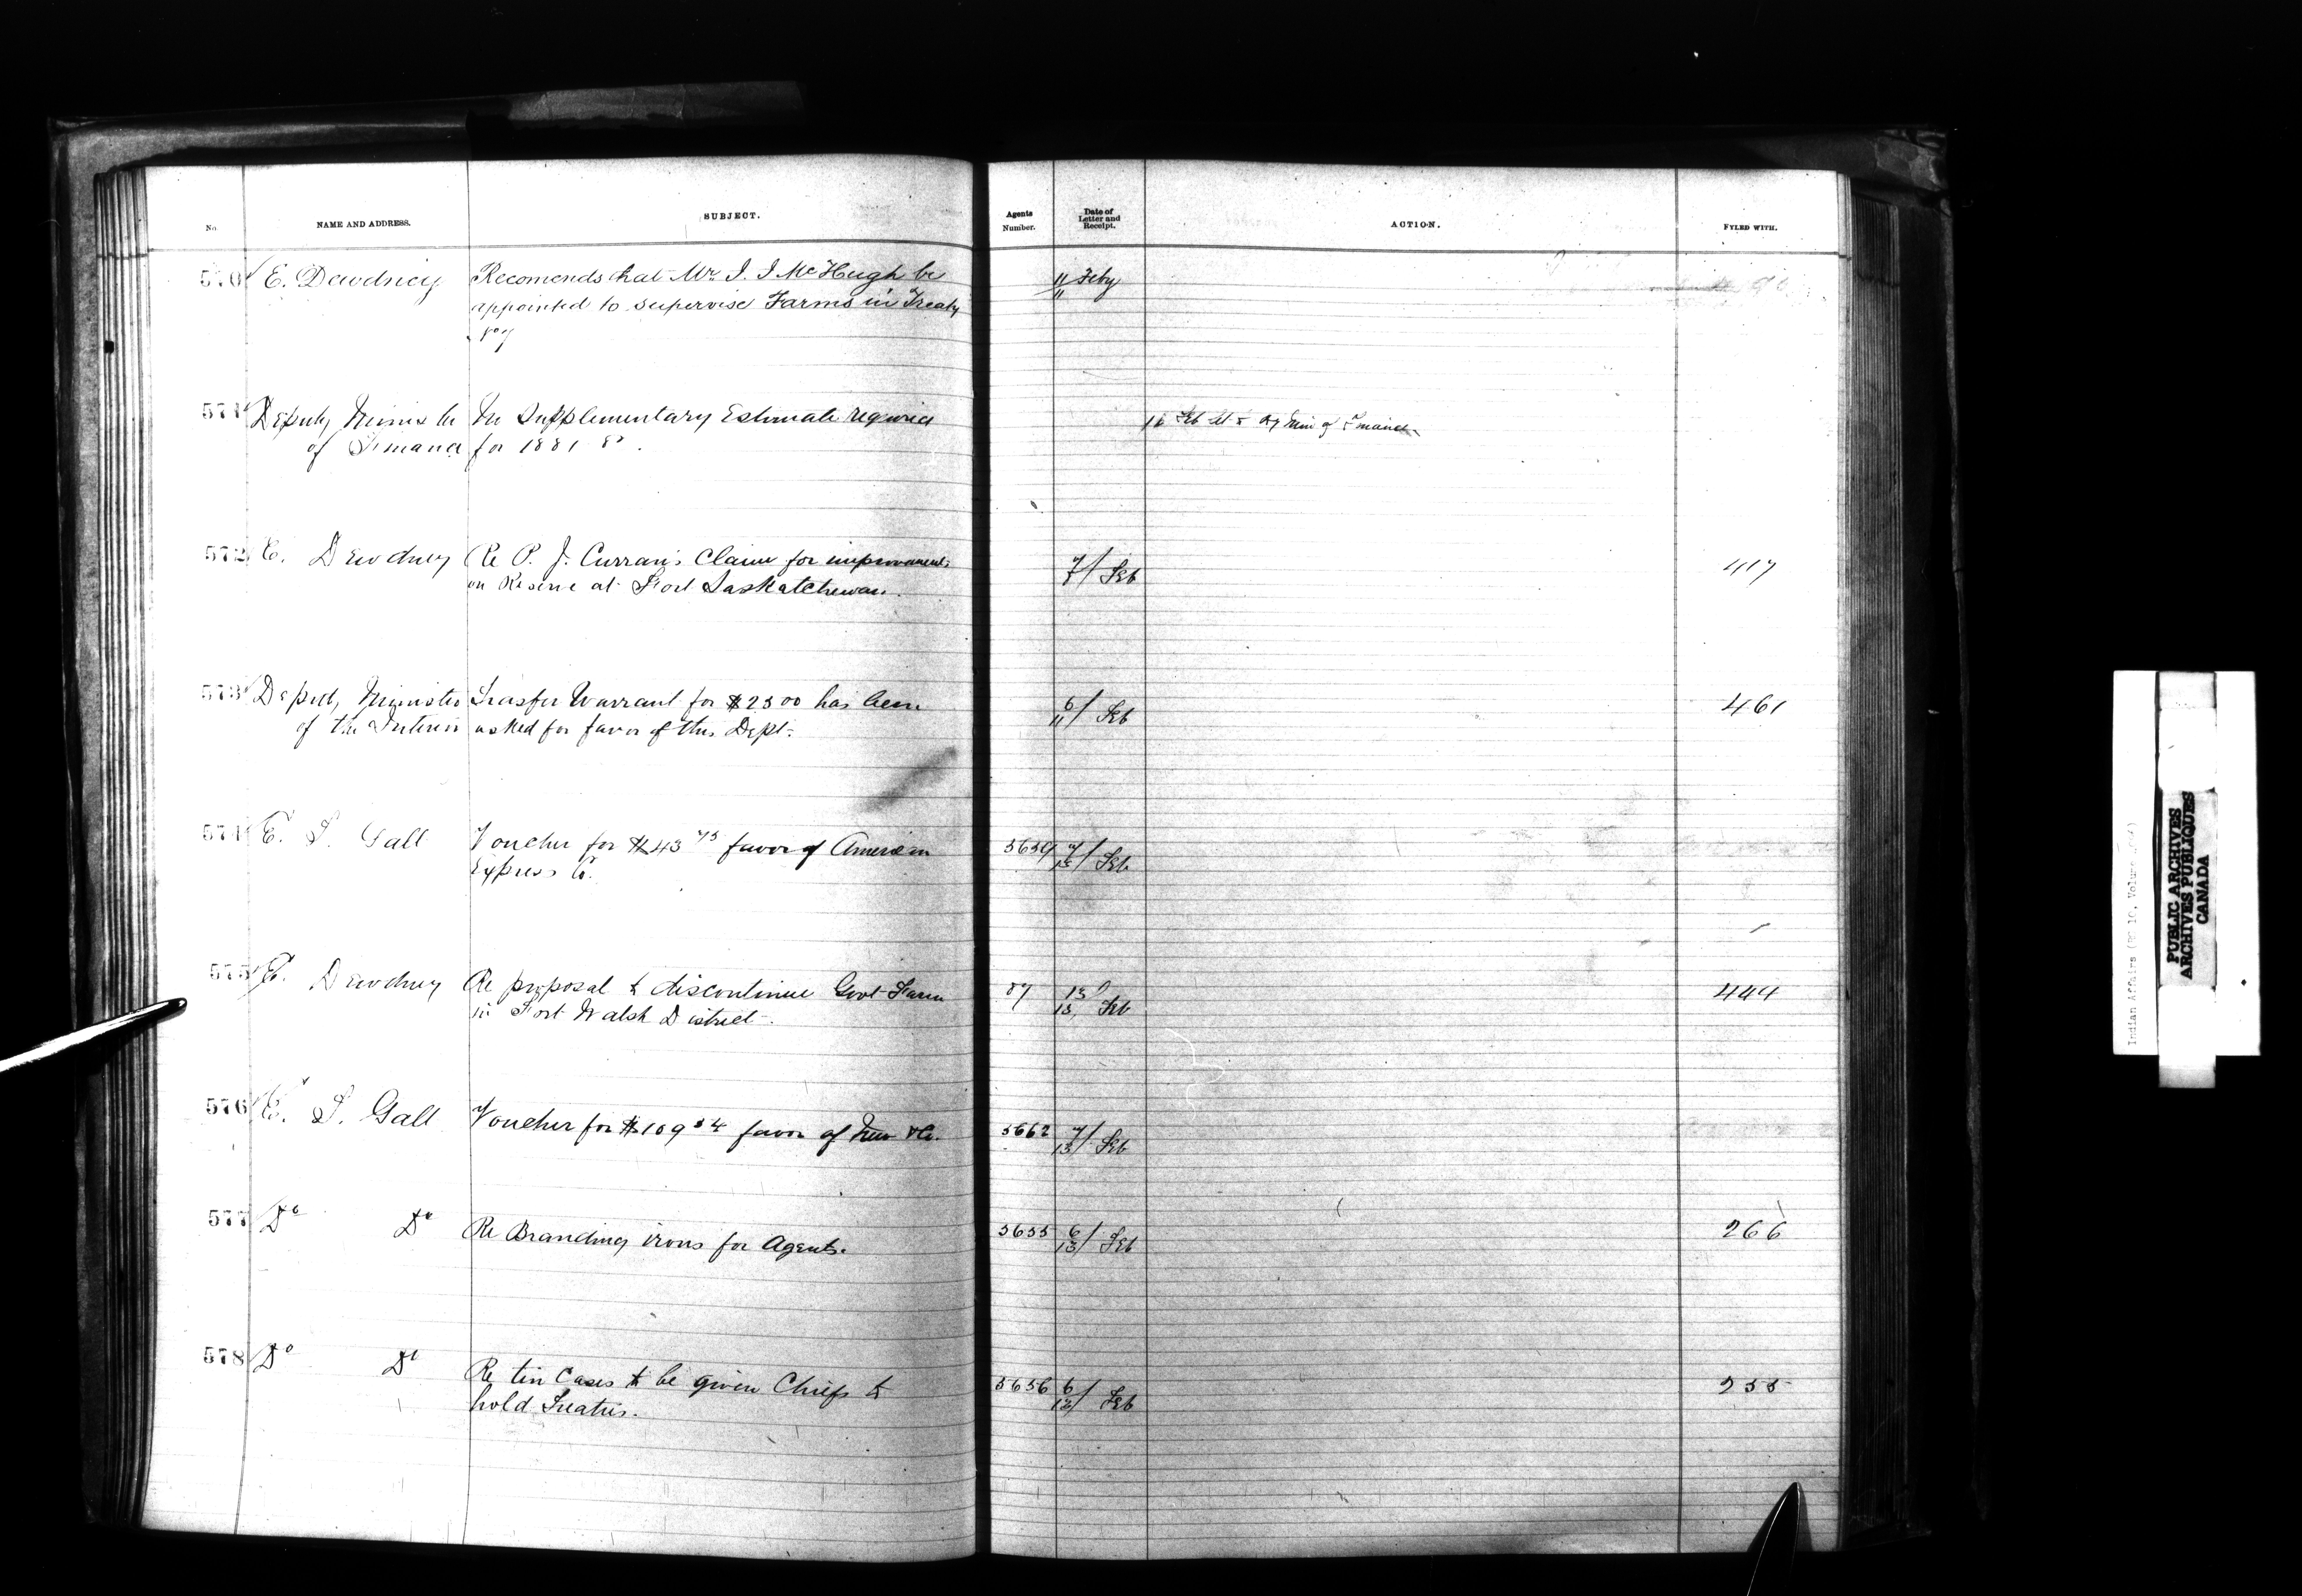 No.
NAME AND ADDRESS.
SUBJECT.
Agents
Number.
Date of
Letter and
Receipt.
ACTION.
FYLED WITH.
570 E. Dewdney Recomends that Mr. J. J McHugh be 11 Feby
appointed to supervise Farms in Treaty 11
No 7
571 Deputy Minister Supplementary Estimate required 16 Feb Dy Min of Finance
of Finance for 1881 82.
572 E. Dewdney Re P. J. Curran's Claim for improvements 7/ Feb 417
on Reserve at Fort Saskatchewan.
573 Deputy Minister Trasfer Warrant for $2300 has been 6/11 Feb 461
of the Interior asked for favor of this Dept.
574 E. T. Galt Voucher for $43 75 favor of American 5659 7/13 Feb
Express Co.
575 E. Dewdney Re proposal to discontinue Govt Farm 87 13 Feb 444
in Fort Walsh District. 13
576 E. T. Galt Voucher for $109 54 favor of 5662 7/13 Feb
577 Do Do Re Branding irons for Agents. 5655 6/13 Feb 266
578 Do Do Re tin Cases to be given Chiefs to 5656 6/13 Feb 255
hold Treaties.
Indian Affairs (RG 10, Volume
PUBLIC ARCHIVES
ARCHIVES PUBLIQUES
CANADA